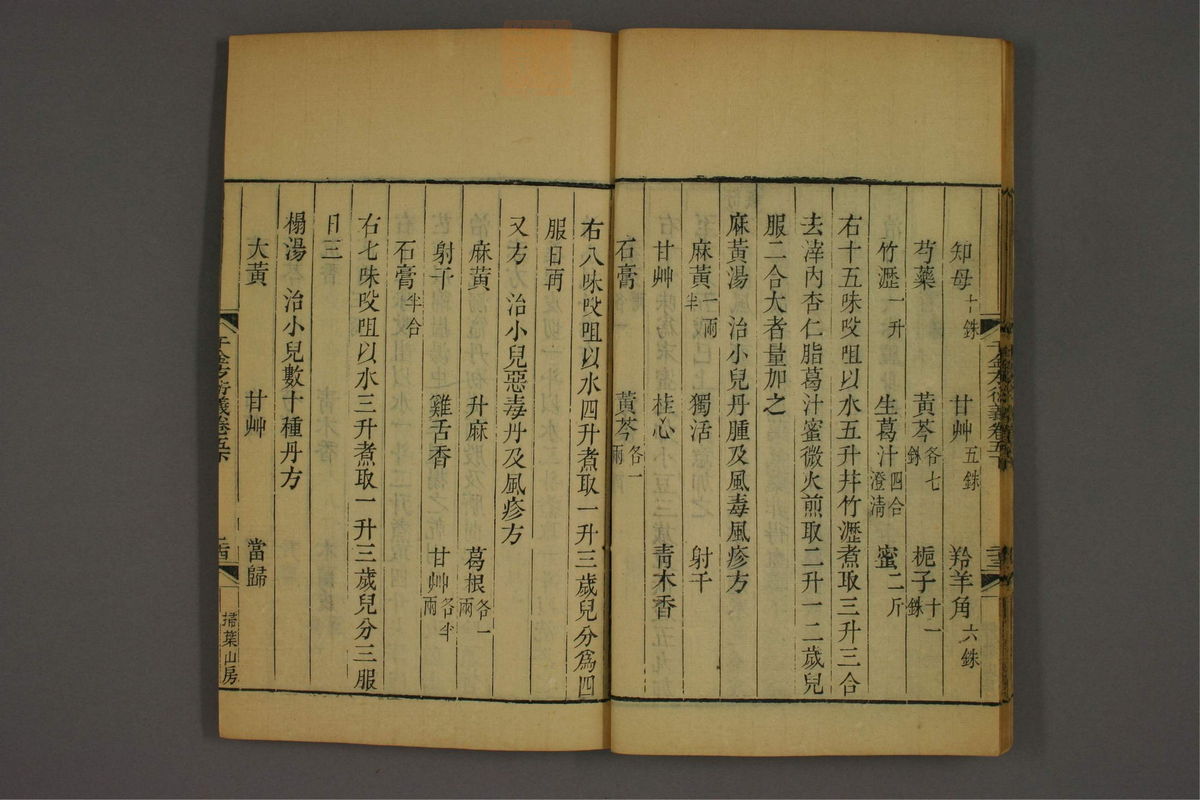 知母十銖 甘艸五銖 羚羊角六銖
芍藥 黃芩各七銖 梔子十一銖
竹瀝一升 生葛汁四合澄清 蜜二斤
右十五味㕮咀以水五升并竹瀝煮取三升三合
去滓內杏仁脂葛汁蜜微火煎取二升一二歲兒
服二合大者量加之
麻黃湯 治小兒丹腫及風毒風疹方
麻黃一兩半 獨活 射干
甘艸 桂心 青木香
石膏 黃芩各一兩
右八味㕮咀以水四升煮取一升三歲兒分爲四
服日再
又方 治小兒惡毒丹及風疹方
麻黃 升麻 葛根各一兩
射干 雞舌香 甘艸各半兩
石膏半合
右七味㕮咀以水三升煮取一升三歲兒分三服
日三
搨湯 治小兒數十種丹方
大黃 甘艸 當歸
千金方衍義卷五下 二十四 掃葉山房